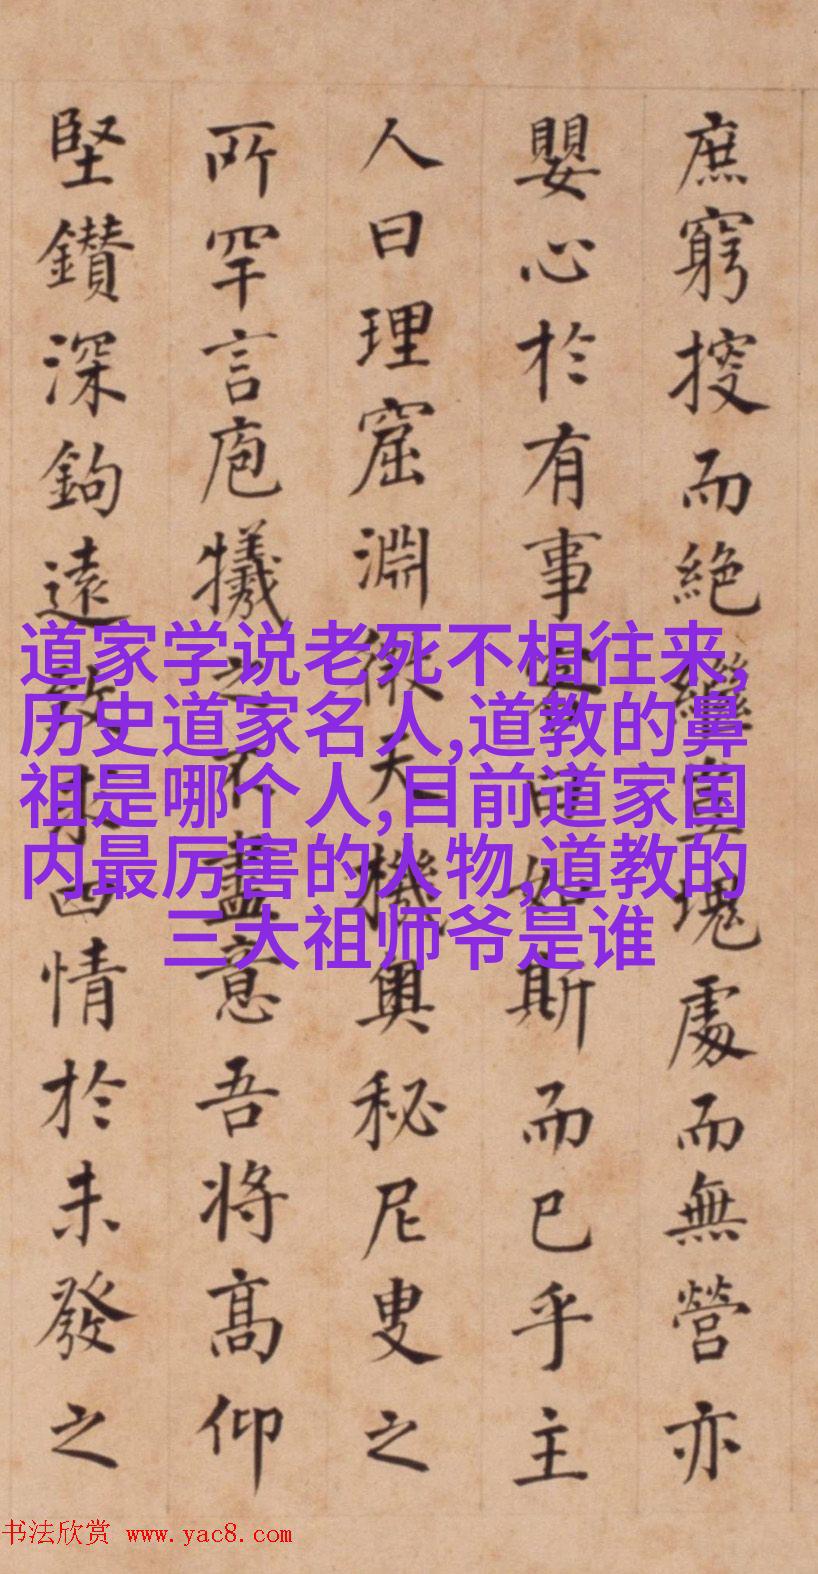 庶窮而絕繼塊處而無營亦
嬰心於有事如斯而已乎主
人曰理窟淵微天機奧秘尼叟之
所罕言庖犧之不盡意吾將高仰
堅鑽深鉤遠致求四情於未發之
道家学说老死不相往来,
历史道家名人,道教的鼻
祖是哪个人,目前道家国
内最厉害的人物,道教的
三大祖师爷是谁
书法欣赏 www.yac8.com